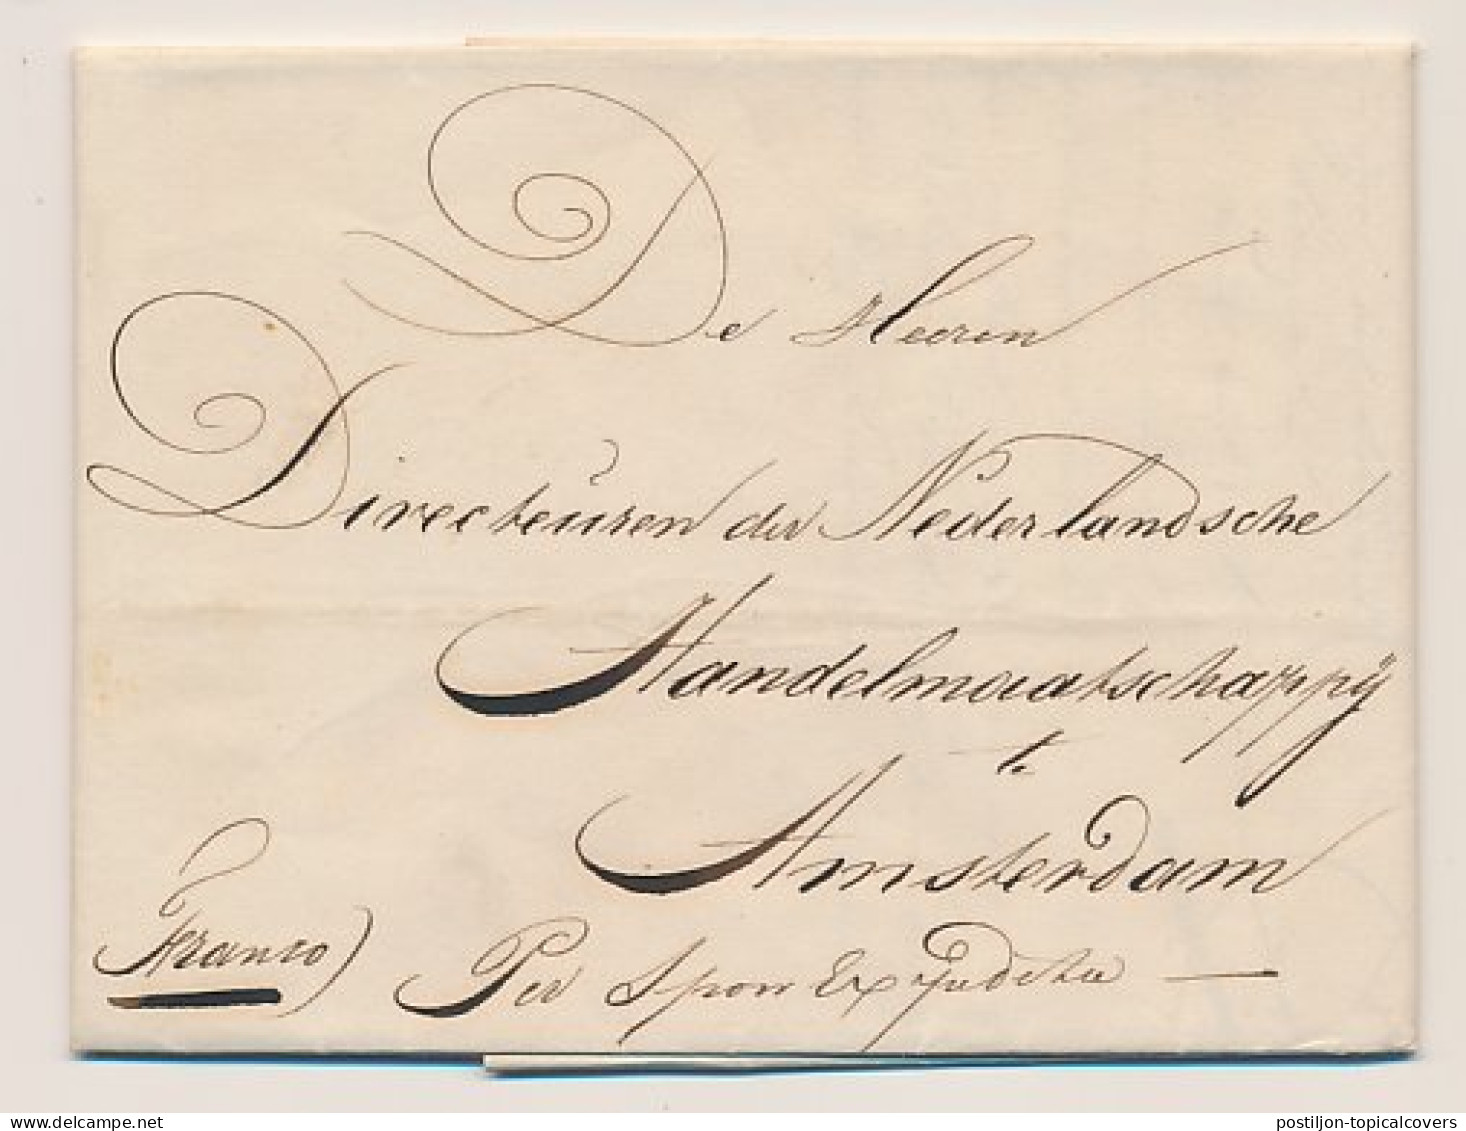 De Heeren
Directeuren der Nederlandsche
Handelmaatschappij
te
Amsterdam
Franco) Per Spon Expeditie
delcampe.net
postiljon-topicalcovers